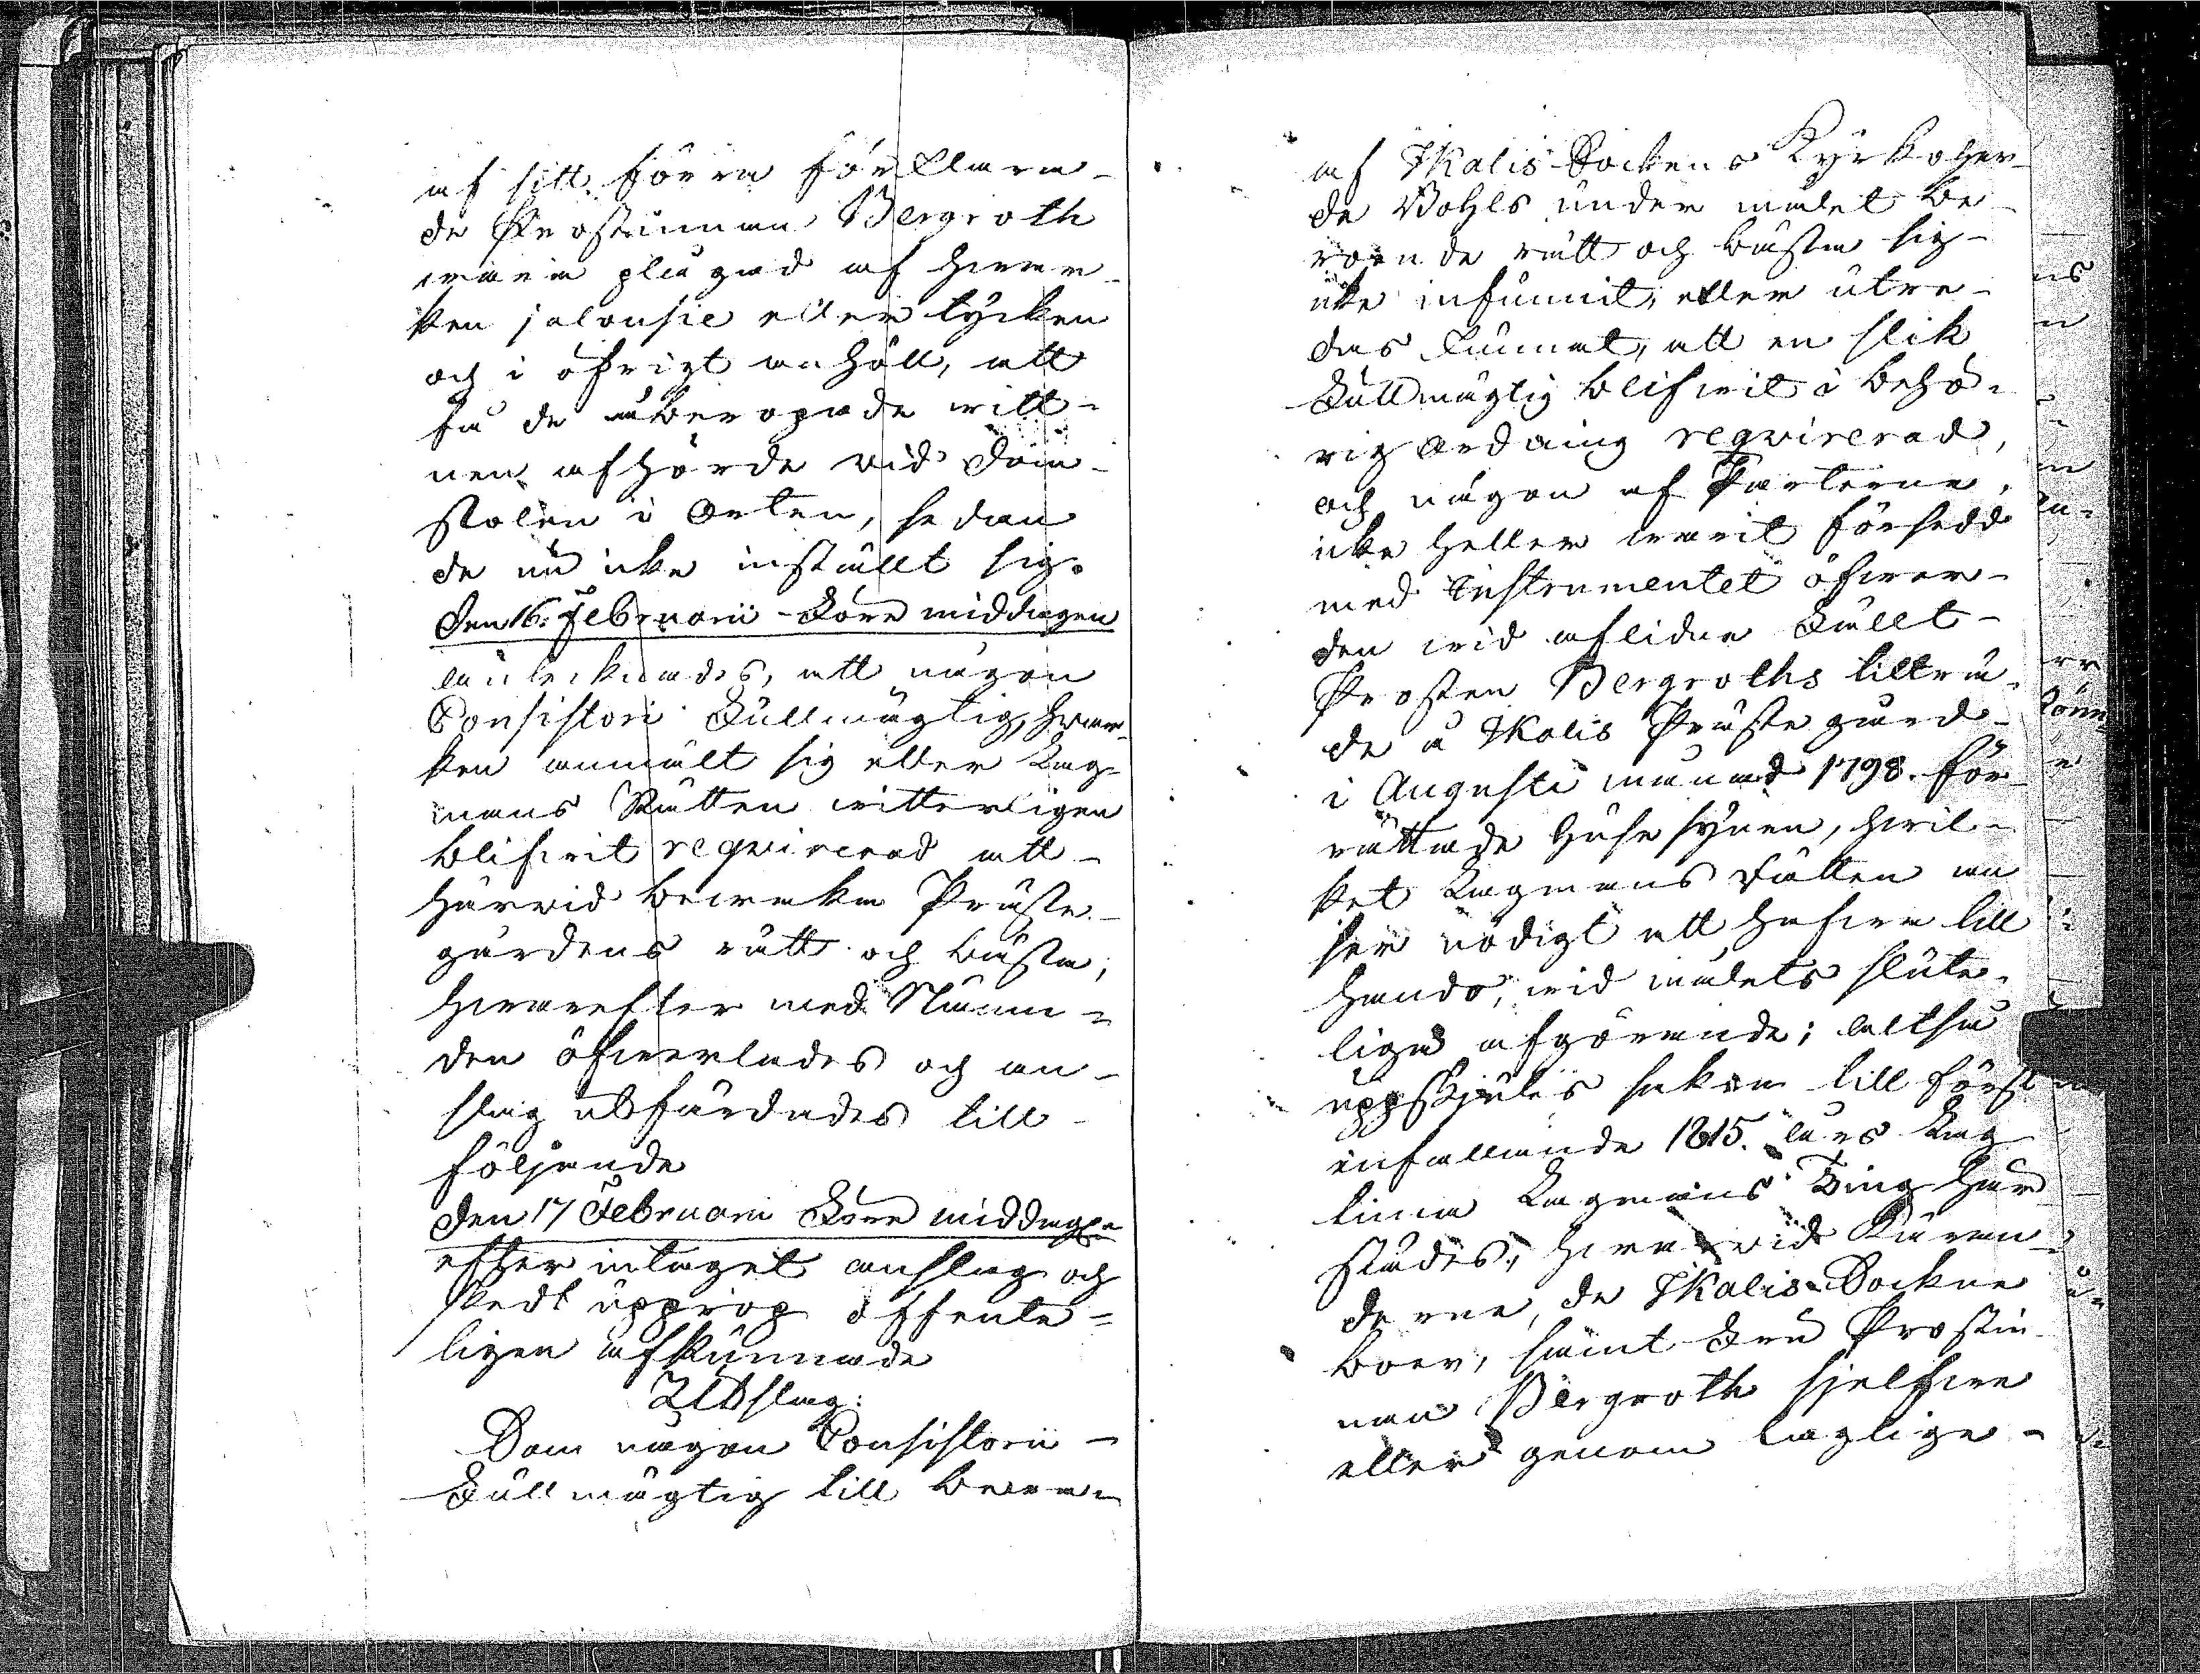 af sitt förra förklaran-
de Prostinnan Bergroth
wara plågad af hwar-
ken jalousie eller tycken
och i öfrigt anhöll, att
få de åberopade witt-
nen afhörde wid Dom-
stolen i Orten, sedan
de nu icke inställt sig.
Den 16. Februarii Före middagen
antecknades, att någon
Consistorii Fullmägtig, hwar-
ken anmält sig eller Lag-
mans Rätten witterligen
blifwit reqvirerad att
härwid bewaka Präste-
gårdens rätt och bästa;
hwarefter med Nämn-
den öfwerlades och an-
slag utfärdades till
följande
Den 17 Februarii Före middagen
efter intaget anslag och
skedt upprop offente-
ligen afkunnade
Utslag:
Som någon Consistorii
Fullmägtig till bewa-
af Ikalis Sockens Kyrkoher-
de Bohls under målet be-
roende rätt och bästa sig
icke infunnit, eller utre-
das kunnat, att en slik
Fullmägtig blifwit i behö-
rig ordning reqvirerad,
och någon af Parterne
icke heller warit försedd
med Instrumentet öfwer
den wid aflidne Fällt-
Prosten Bergroths tillträ-
de å Ikalis Prästegård
i Augusti månad 1798. för-
rättade Husesynen, hwil-
ket Lagmans Rätten an-
ser nödigt att hafwa till
hands, wid målets slute-
liga afgörande; altså
uppskjutes saken till först
infallande 1815. års Lag-
tima Lagmans Ting här-
städes, hwarwid Käran-
derne, de Ikalis Sockne
boer, samt Fru Prostin-
nan Bergroth sjelfwe
eller genom laglige